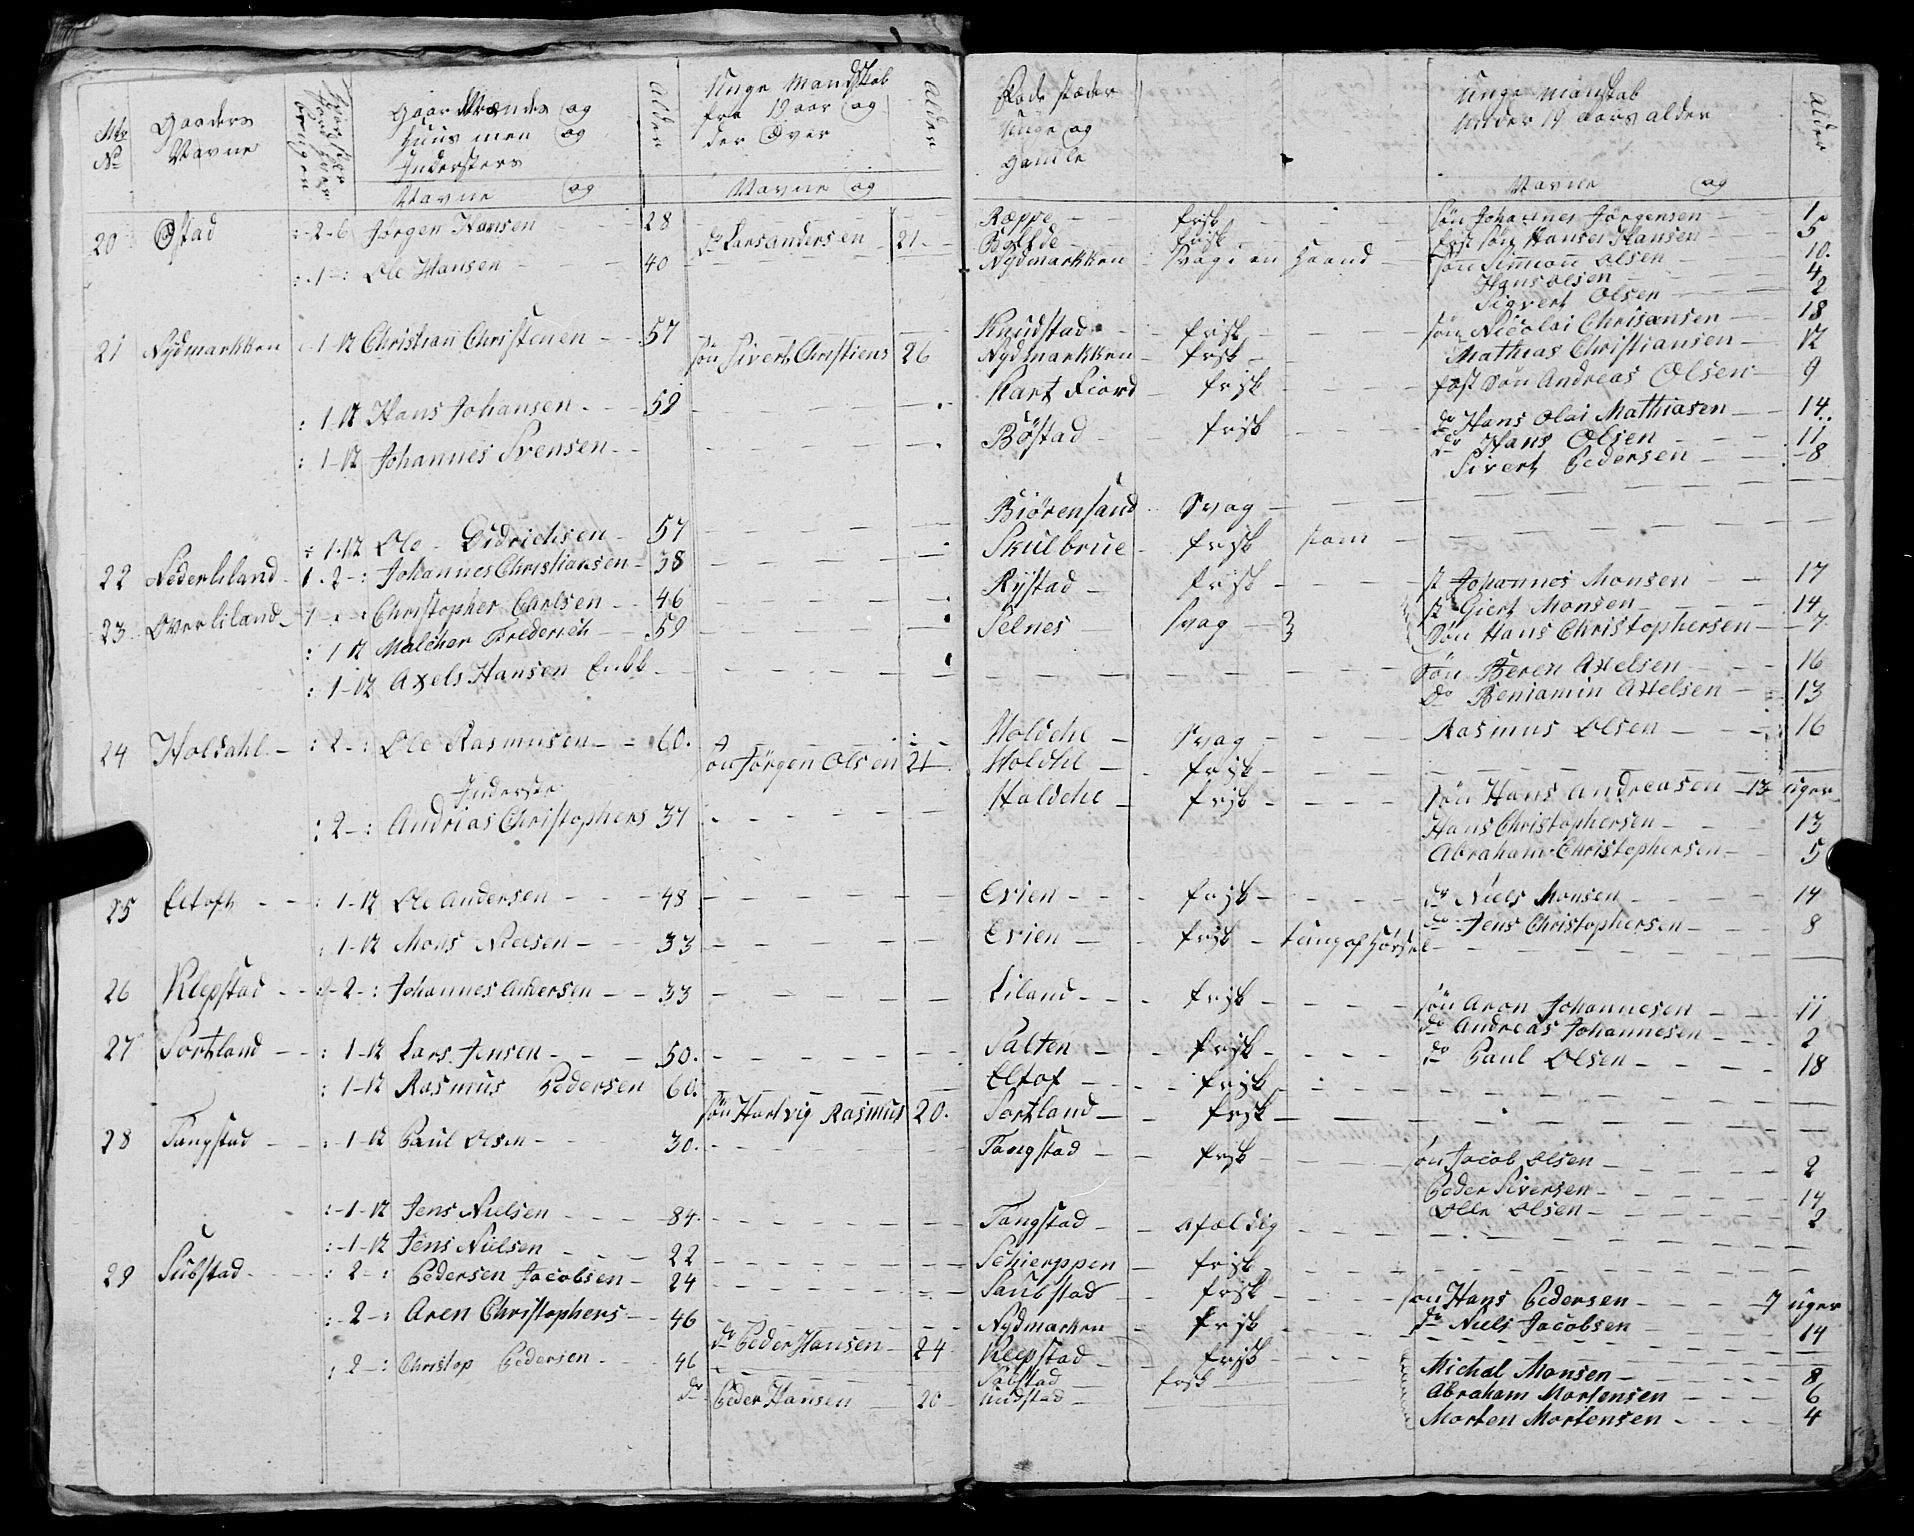 Mtr No Gaarders Navne Gaardmænds og Huusmen og Indersters Navne og Alder Unge Mandskab fra 19 aar og der Over Navne og Alder
Føde stæder Unge og Gamle Unge Manskab Under 19 aars alder Navne og Alder
20 Ostad :-2-6 Jørgen Hansen 28
do Lars andersen 21
:-1-: Ole Hansen 40
21 Nydmarkken 1-12 Christian Christenen 57 søn Sivert Christiens 26
: 1-12 Hans Johansen 59
: 1-12 Johannes Svensen
: 1-12 Ole Didrichsen 57
22 Nederliland 1-2-: Johannes Christiansen 38
23 Overliland 1-: Christopher Carlsen 46
: 1-12 Malcher Frederich 59
: 1-12 Axels Hansen Enkk
24 Holdahl : 2-: Ole Rasmusen 60.
søn Jørgen Olsen 21
Inderste
: 2-: Andrias Christophers 37
25 Eltoft : 1-12 Ole Andersen 48
: 1-12 Mons Nielsen 33
26 Klepstad 2-: Johannes Andersen 33
27 Sortland : 1-12 Lars Jensen 50.
: 1-12 Rasmus Pedersen 60.
søn Hartvig Rasmus 20.
28 Tangstad : 1-12 Paul Olsen 30.
:-1-12 Jens Nielsen 84.
:-1-12 Jens Nielsen 22
29 Substad : 2-: Pedersen Jacobsen 24
:-2-: Aren Christophers 46
do Peder Hansen 24
: 2-: Christop Pedersen 46
do Peder Hansen 20
Ræppe frisk søn Johannes Jørgensen 1
Bøllde frisk fost søn Hanses Hansen 5
Nydmarkken svag i en Haand søn Simeon Olsen 10.
Hans Olsen 4
Sigvert Olsen 2
Knudstad frisk søn Nicolai Chrisænsen 18
Nydmarkken frisk Mathias Christiansen 12
Kart Fiord frisk fost søn Andreas Olsen 9
Bøstad frisk do Hans Olai Mathiasen 14
do Hans Olsen 11
Sivert Pedersen 8
Biørensand svag
Skulbrue frisk som
Rystad frisk st Johannes Monsen 17
st Giert Monsen 14
Selnes svag søn Hans Christophersen 7
søn Beren Axelsen 16
do Beniamin Axelsen 13
Holdehl svag Rasmus Olsen 16
Holdhl frisk
Haldehl frisk søn Hans Andreasen 13 uger
Hans Christophersen 13
Abraham Christophersen 5
Evien frisk do Niels Monsen 14
do Jens Christophersen 8
Evien frisk tung af Hørsel
Liland frisk søn Aron Johannesen 11
do Andreas Johannesen 2
Salten frisk do Paul Olsen 18
Eltof frisk
Sortland frisk
Tangstad frisk søn Jacob Olsen 2
Peder Siversen 14
Olle Olsen 2
Tangstad Afældig
Schierppen frisk
Saubstad frisk søn Hans Pedersen 7 uger
Nydmarken frisk do Niels Jacobsen 14
Klepstad frisk
Michal Monsen 8
Sobstad frisk Abraham Mortensen 6
Morten Mortensen 4